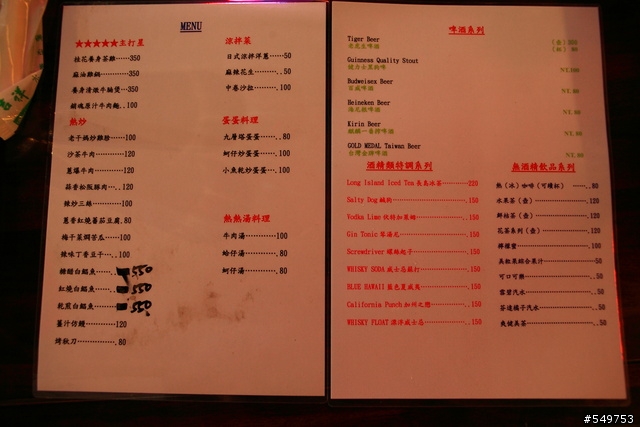 MENU
★★★★★主打星
桂花養身茶雞⋯⋯350
麻油雞鍋⋯⋯⋯350
養身清燉牛腩煲⋯350
鋪魂原汁牛肉麵..100
熱炒
老干媽炒雞胗⋯⋯100
沙茶牛肉⋯⋯⋯120
蔥爆牛肉⋯⋯⋯120
蒜香松阪豚肉⋯.120
辣炒三絲⋯⋯⋯100
蔥香紅燒蕃茄豆腐.80
梅干菜燜苦瓜⋯⋯100
辣味丁香豆干⋯.100
糖醋白鯧魚⋯ 550
紅燒白鯧魚⋯ 550
乾煎白鯧魚⋯ 550
薑汁仿饅⋯⋯⋯120
烤秋刀⋯⋯⋯⋯.80
涼拌菜
日式涼拌洋蔥⋯⋯50
麻辣花生⋯⋯⋯.50
中卷沙拉⋯⋯⋯.100
蛋蛋料理
九層塔蛋蛋⋯⋯..80
蚵仔炒蛋蛋⋯⋯.100
小魚乾炒蛋蛋⋯.100
熱熱湯料理
牛肉湯⋯⋯⋯⋯100
蛤仔湯⋯⋯⋯⋯.80
蚵仔湯⋯⋯⋯⋯.80
啤酒系列
Tiger Beer
老虎生啤酒
Guinness Quality Stout
健力士黑狗啤 NT.100
Budweisex Beer
百威啤酒 NT. 80
Beineken Beer
海尼根啤酒 NT. 80
Kirin Beer
麒麟一番搾啤酒 NT. 80
GOLD MEDAL Taiwan Beer
台灣金牌啤酒 NT. 80
酒精類特調系列
Long Island Iced Tea 長島冰茶⋯⋯⋯220
Salty Dog 鹹狗⋯⋯⋯⋯⋯⋯.150
Vodka Lime 伏特加萊姆⋯⋯⋯⋯.150
Gin Tonic 琴湯尼⋯⋯⋯⋯⋯.150
Screwdriver 螺絲起子⋯⋯⋯⋯.150
WHISKY SODA 威士忌蘇打⋯⋯⋯.150
BLUE HAWAII 藍色夏威夷⋯⋯⋯.150
California Punch 加州之戀⋯⋯.150
WHISKY FLOAT 漂浮威士忌⋯⋯⋯.150
無酒精飲品系列
熱（冰）咖啡（可續杯） ⋯..80
水果茶（壺）⋯⋯⋯⋯.120
鮮柚茶（壺）⋯⋯⋯⋯.120
花茶系列（壺）⋯⋯⋯.120
檸檬蜜⋯⋯⋯⋯⋯⋯.100
具蔬果綜合果汁⋯⋯⋯⋯50
可口可樂⋯⋯⋯⋯⋯..50
雪碧汽水⋯⋯⋯⋯⋯..50
芬達橘子汽水⋯⋯⋯⋯..50
爽健美茶⋯⋯⋯⋯⋯..50
#549753